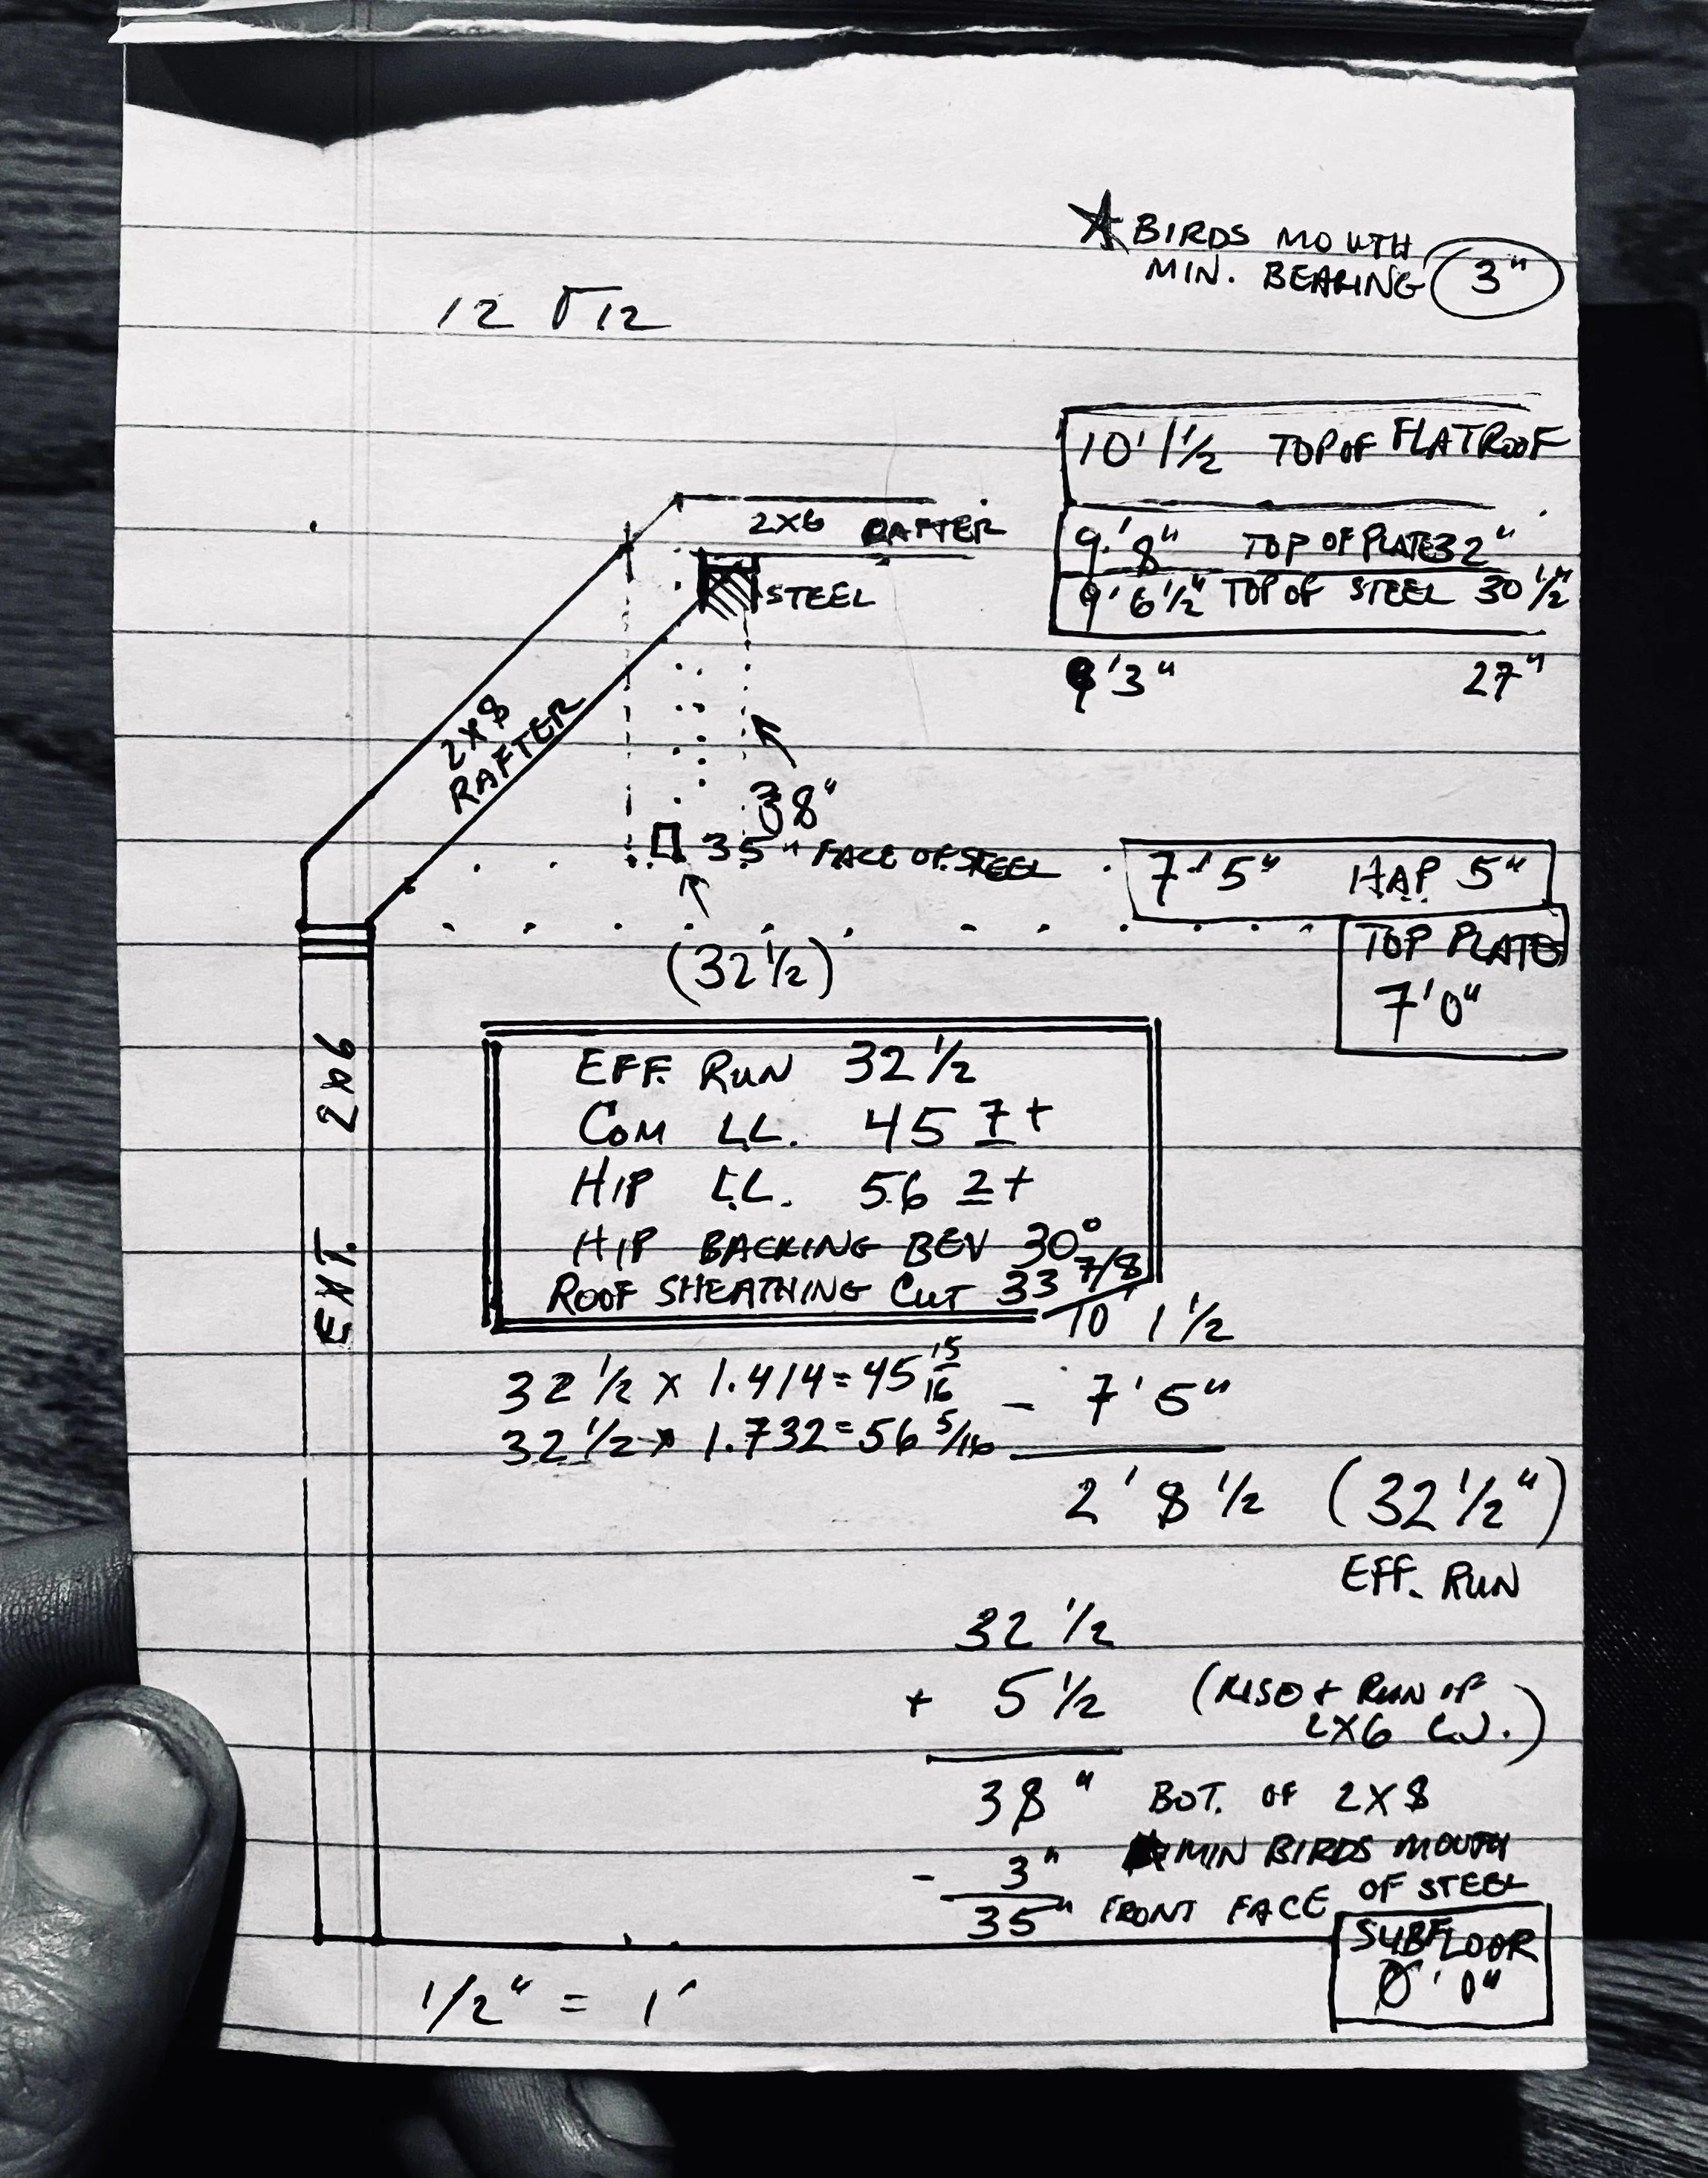 ★ BIRDS MOUTH
MIN. BEARING 3"
12 12
10' 1 1/2 TOP OF FLAT ROOF
9' 8" TOP OF PLATE 32"
9' 6 1/2" TOP OF STEEL 30 1/2"
9' 3" 27"
2X6 RAFTER
STEEL
2X8
RAFTER
38"
35" FACE OF STEEL
(32 1/2)
7' 5" H.A.P. 5"
TOP PLATE
7' 0"
EXT. 2x6
EFF. RUN 32 1/2
COM L.L. 45 7+
HIP L.L. 56 2+
HIP BACKING BEV 30°
ROOF SHEATHING CUT 33 7/8
32 1/2 x 1.414 = 45 15/16
32 1/2 x 1.732 = 56 5/16
10' 1 1/2
- 7' 5"
2' 8 1/2 (32 1/2")
EFF. RUN
32 1/2
+ 5 1/2 (RISE + RUN OF
2X6 .)
38" BOT. OF 2X8
- 3" MIN BIRDS MOUTH
35" FRONT FACE OF STEEL
SUBFLOOR
0' 0"
1/2" = 1'